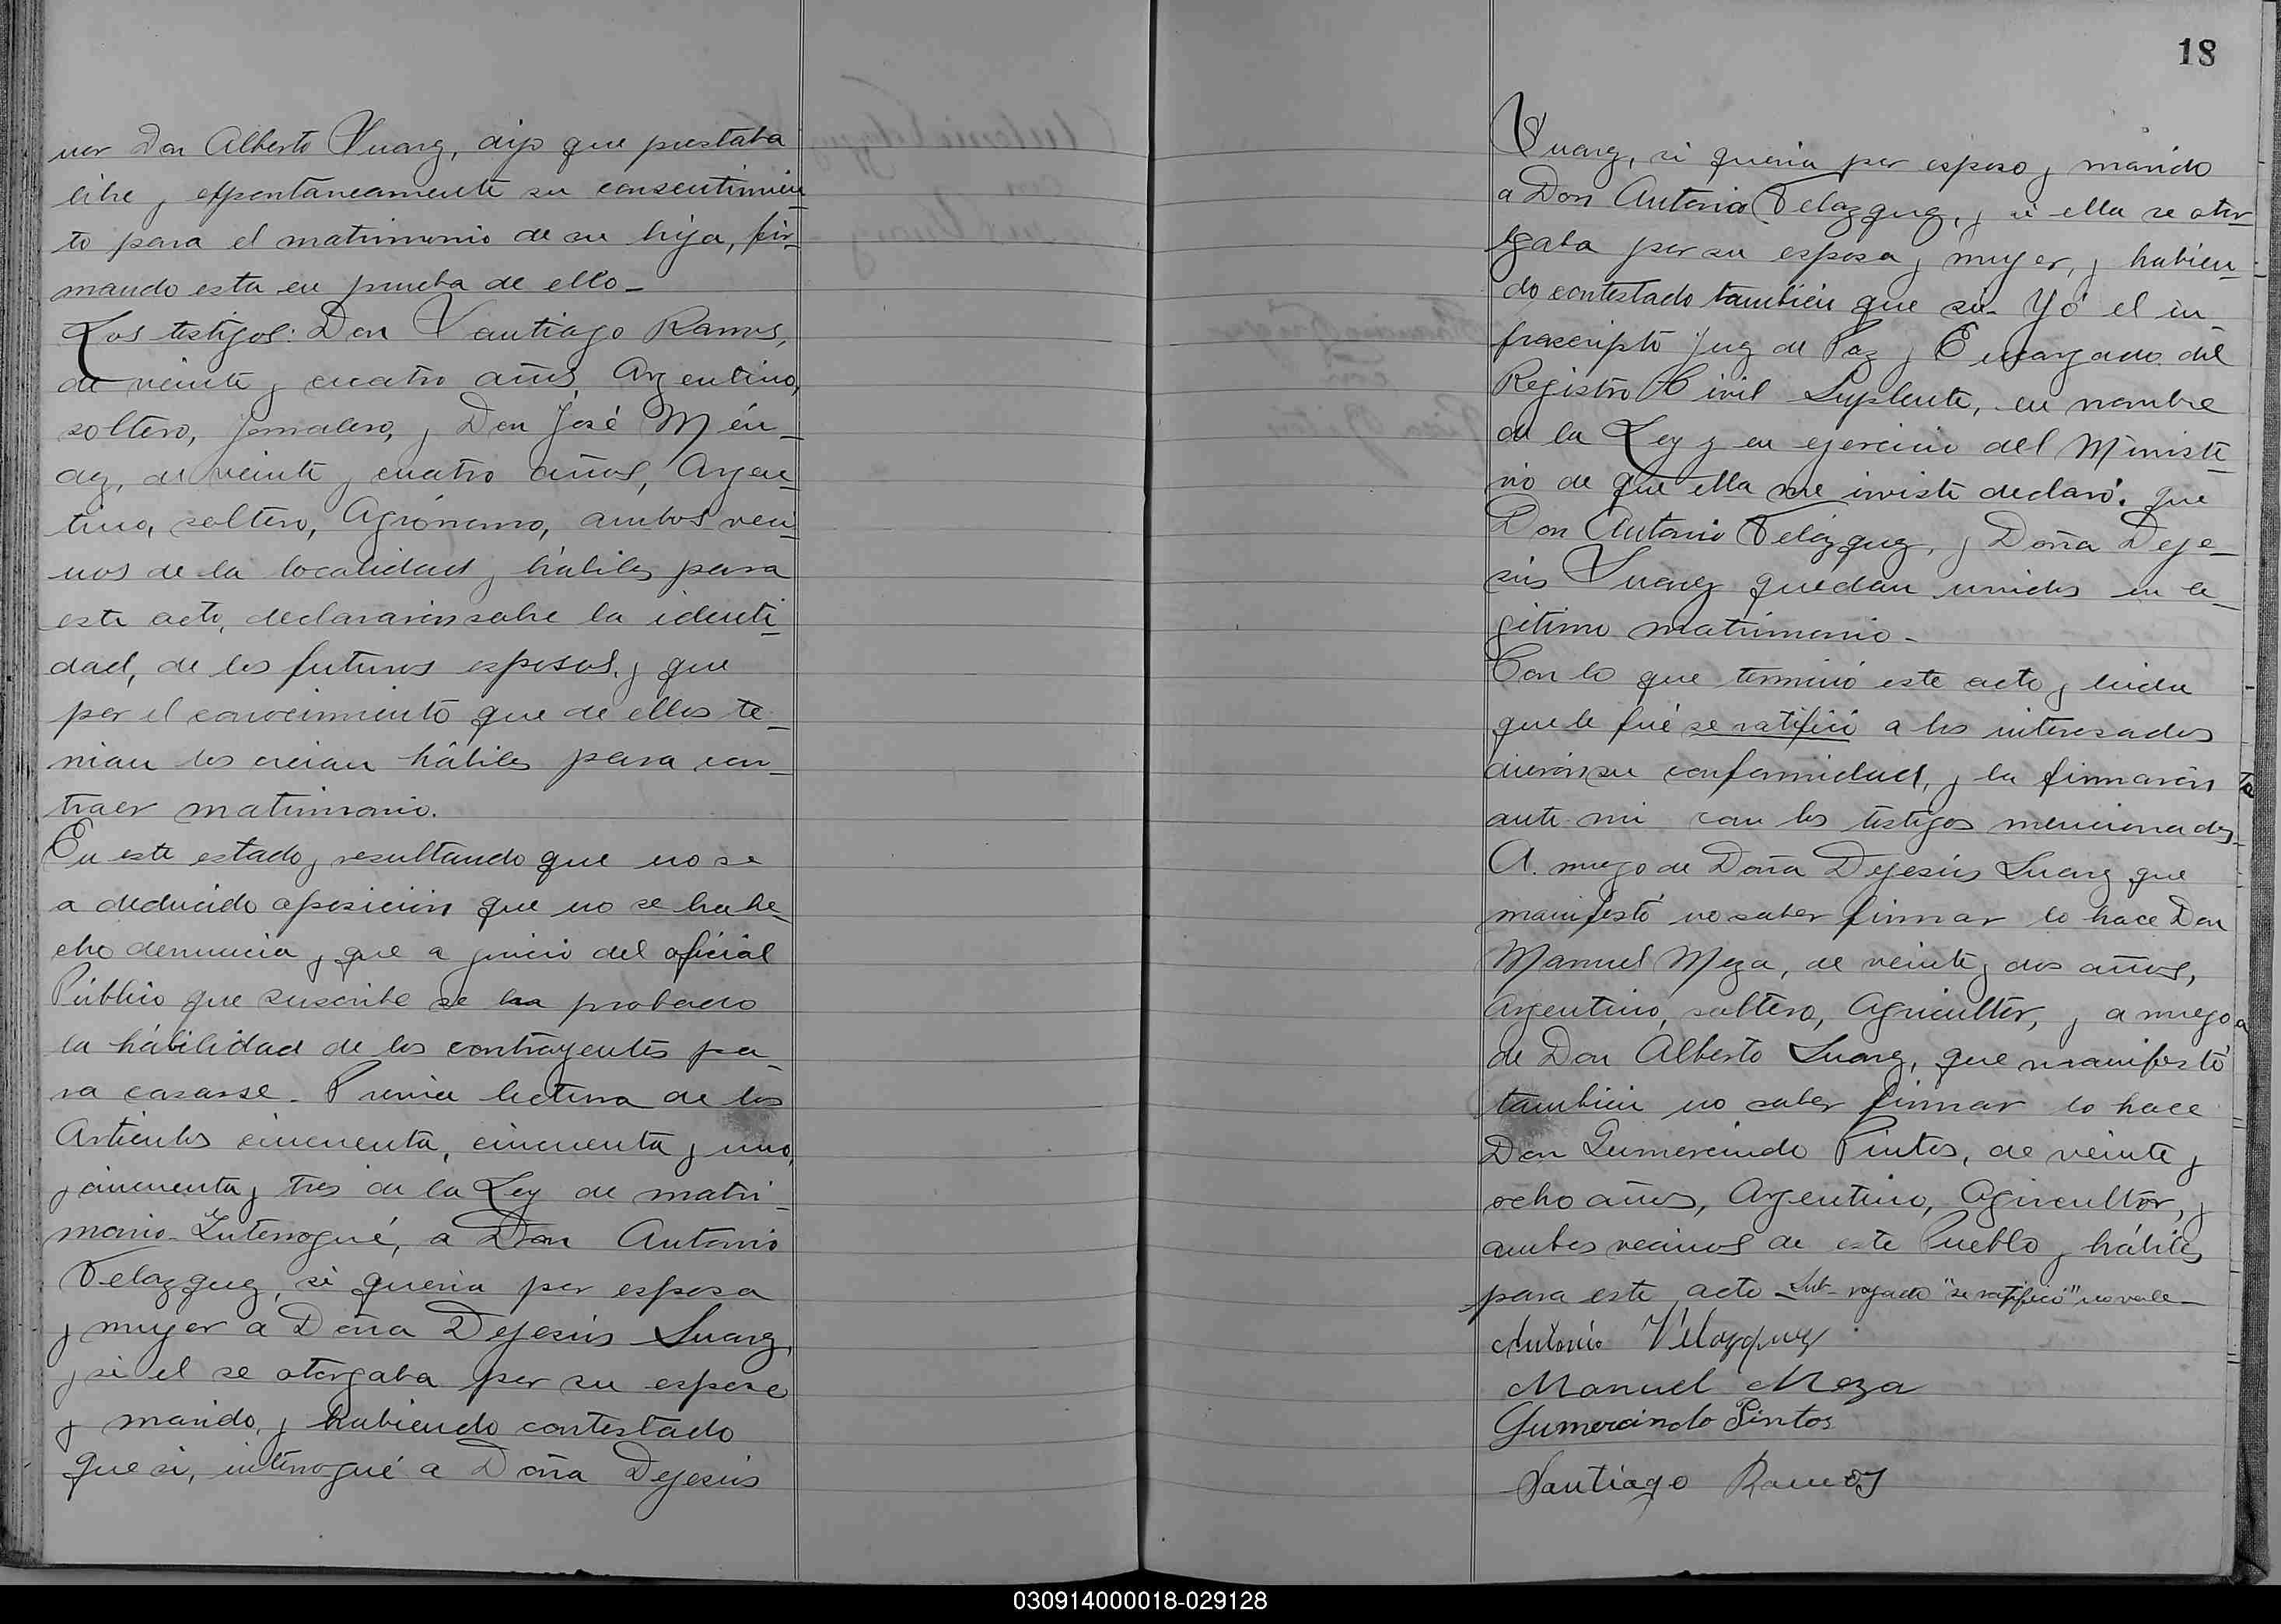 ner Don Alberto Suarez, dijo que prestaba
libre y espontaneamente su consentimien
to para el matrimonio de su hija, fir-
mando esta en prueba de ello-
Los testigos: Don Santiago Ramos,
de veinte y cuatro años, Argentino,
soltero, Jornalero, y Don José Mén-
dez, de veinte y cuatro años, Argen-
tino, soltero, Agrónomo, ambos veci-
nos de la localidad y hábiles para
este acto, declararón sobre la identi-
dad, de los futuros esposos, y que
por el conocimiento que de ellos te-
nian los creian hábiles para con-
traer matrimonio.
En este estado, resultando que no se
a deducido oposición que no se ha he-
cho denuncia y que a juicio del oficial
Público que suscribe se ha probado
la habilidad de los contrayentes pa-
ra casarse. Previa lectura de los
Articulos cincuenta, cincuenta y uno,
y cincuenta y tres de la Ley de matri-
monio- Interrogué, a Don Antonio
Velazquez, si queria por esposa
y mujer a Doña Dejesús Suarez,
y si el se otorgaba por su esposo
y marido, y habiendo contestado
que si, interrogué a Doña Dejesús
18
Suarez, si queria por esposo y marido
a Don Antonio Velazquez, y si ella se otor-
gaba por su esposa y mujer, y habien-
do contestado también que si- Yó el in-
frascripto Juez de Paz y Encargado del
Registro Civil Suplente, en nombre
de la Ley y en ejercicio del Ministe-
rio de que ella me inviste declaró: que
Don Antonio Velázquez, y Doña Deje-
sús Suarez quedan unidos en le-
gitimo matrimonio-
Con lo que terminó este acto y leida
que le fué se ratificó a los interesados
dierón su conformidad, y la firmarón
ante mi con los testigos mencionados-
A. ruego de Doña Dejesús Suarez que
manifestó no saber firmar lo hace Don
Manuel Meza, de veinte y dos años,
Argentino, soltero, Agricultor, y a ruego
de Don Alberto Suarez, que manifestó
también no saber firmar lo hace
Don Gumercindo Pintos, de veinte y
ocho años, Argentino, Agricultor, y
ambos vecinos de este Pueblo y hábiles
para este acto- Sub-rayado "se ratificó" no vale-
Antonio Velazquez
Manuel Meza
Gumercindo Pintos
Santiago Ramos
030914000018-029128